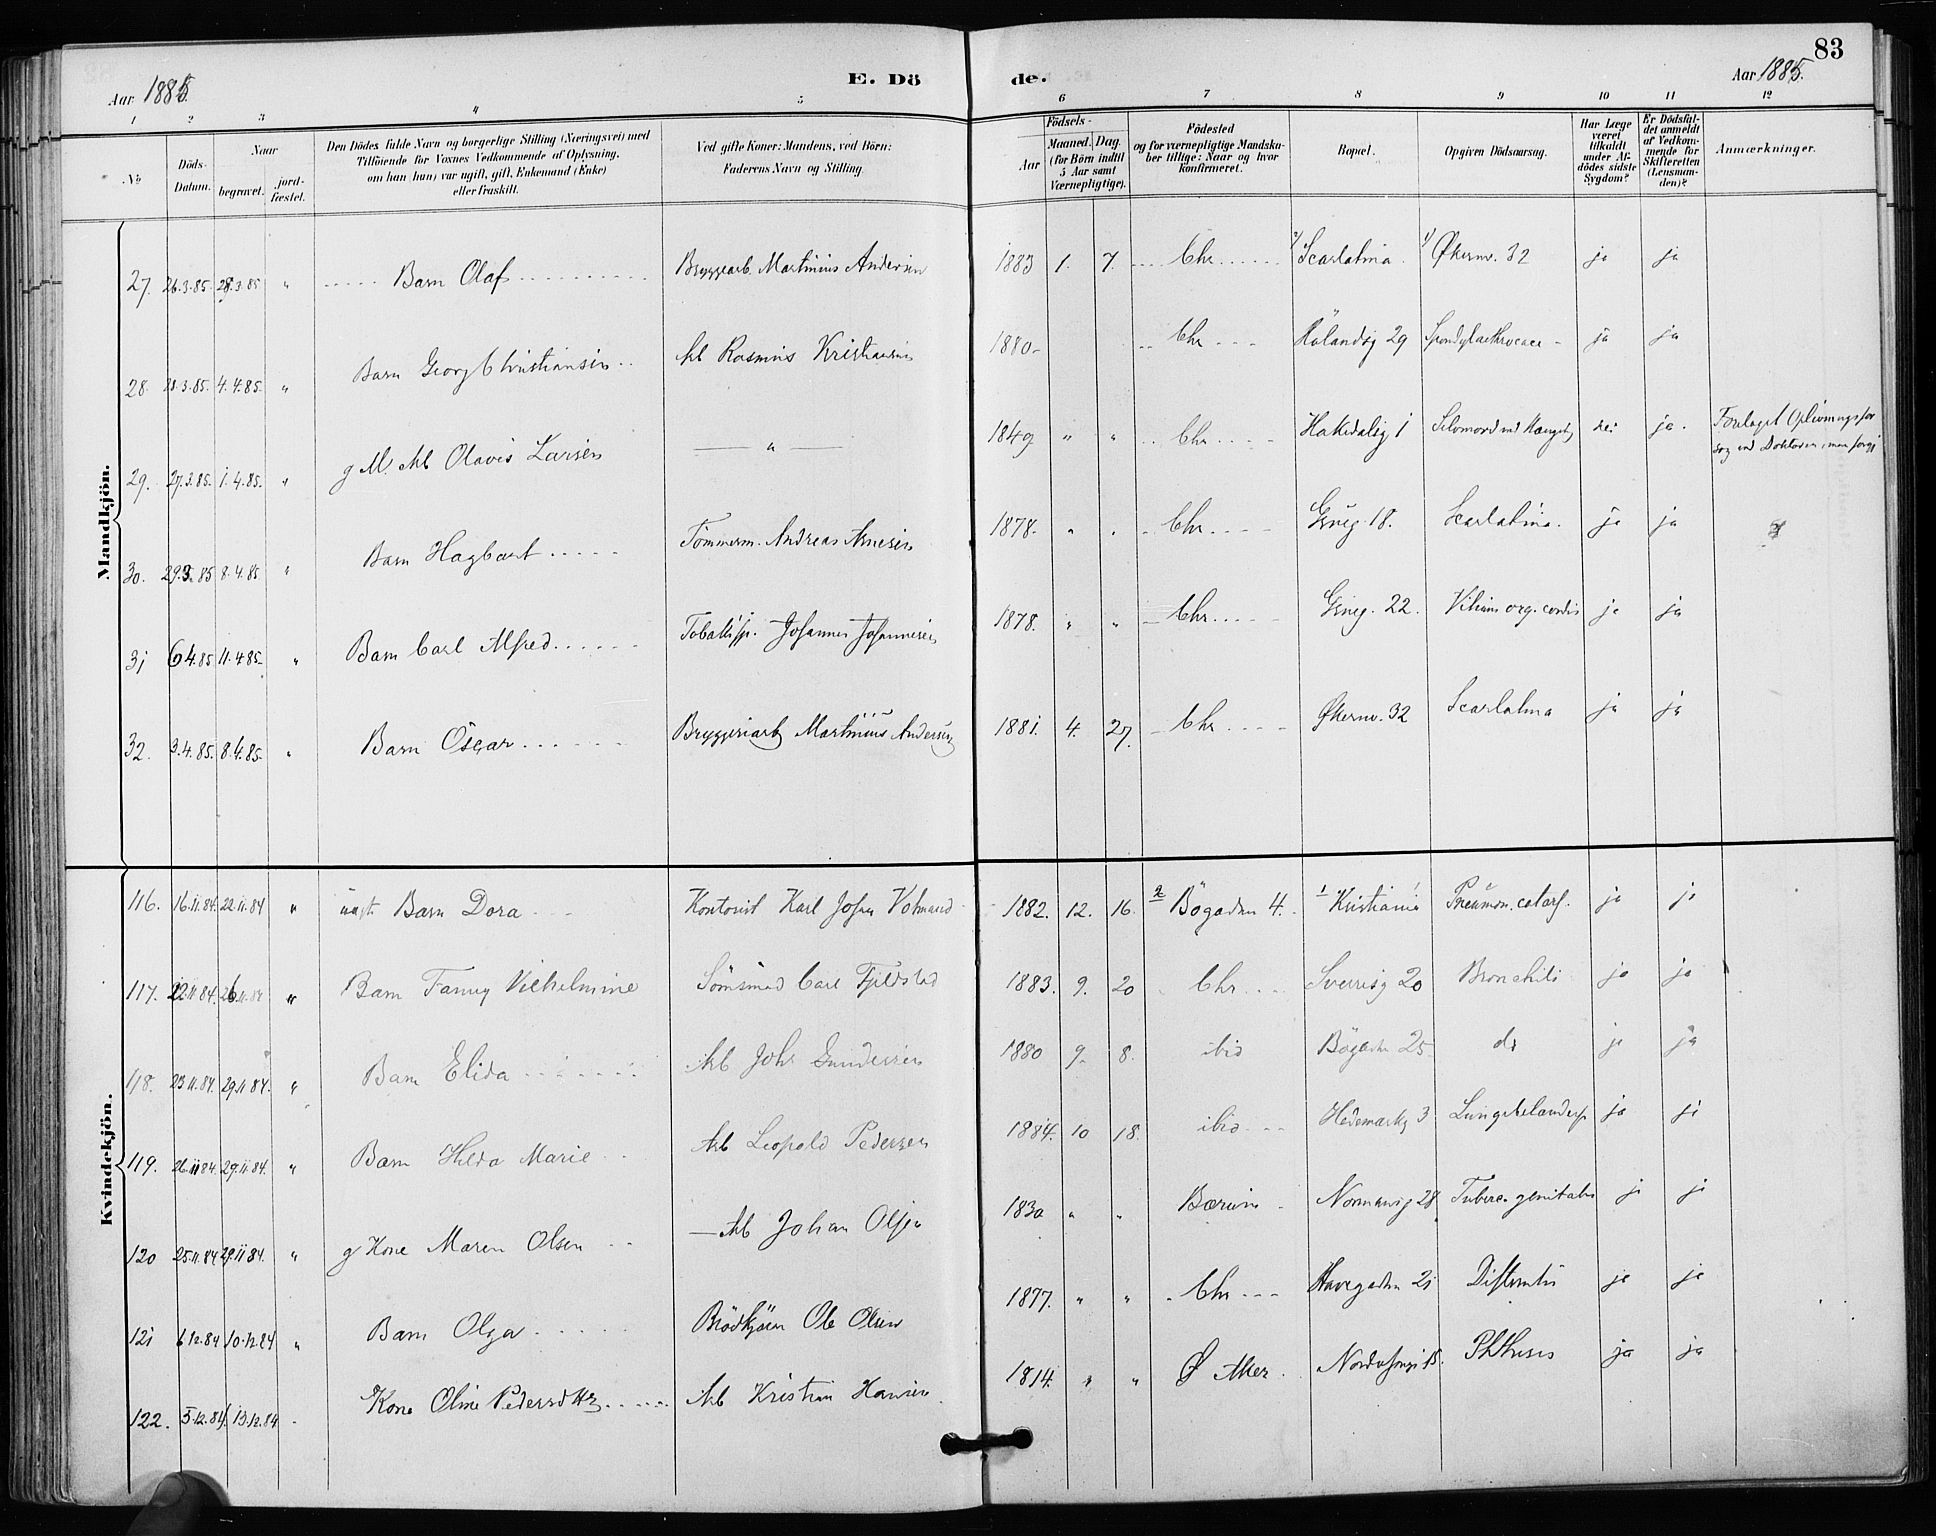 83
Aar 1885.
E. Dö de.
Aar 1885.
1 2 3 4 5 6 7 8 9 10 11 12
No
Döds-Datum.
Naar
begravet.
jord-fæstet.
Den Dödes fulde Navn og borgerlige Stilling (Næringsvei) med
Tilföiende for Voxnes Vedkommende af Oplysning,
om han (hun) var ugift, gift, Enkemand (Enke)
eller fraskilt.
Ved gifte Koner: Mandens, ved Börn:
Faderens Navn og Stilling.
Födsels-
Aar
Maaned. Dag
(for Börn indtil
5 Aar samt
Værnepligtige).
Födested
og for værnepligtige Mandska-
ber tillige: Naar og hvor
konfirmeret.
Bopæl.
Opgiven Dödsaarsag.
Har Læge
været
tilkaldt
under Af-
dödes sidste
Sygdom?
Er Dödsfal-
det anmeldt
af Vedkom-
mende for
Skifteretten
(Lensman-
den)?
Anmærkninger.
Mandkjön.
27. 26.3.85. 28.3.85 " Barn Olaf Bryggearb. Martinius Andersen 1883 1. 7. Chr 2) Scarlatina. 1) Økernv. 32 ja ja
28. 4.4.85. " Barn Georg Christiansen Arb Rasmus Kristiansen 1880 Chr Hölandsg 29 Spondylarthrocace ja ja
29. 27.3.85. 1.4.85. " g M. Arb Olavis Larsen " 1849 " " Chr Hakedalsg 1 Selvmord ved Hængeg nei ja. Foretaget Oplivningsfor
søg ved Doktoren, men forgj
30. 29.3.85 8.4.85 " Barn Hagbart Tömmerm. Andreas Arnesen 1878. " " Chr Grüneg. 18. Scarlatina. ja ja
31 6.4.85 11.4.85 " Barn Carl Alfred Tobaksp. Johannes Johannesen 1878. " " Chr Grüneg. 22. Vitium org. cordis ja ja
32. 3.4.85. 8.4.85 " Barn Oscar Bryggeriarb Martinius Andersen 1881. 4. 27. Chr Økernv. 32 Scarlatina ja ja
Kvindekjön.
116. 16.11.84. 22.11.84 " Barn Dora Kontorist Karl Johan Volmand 1882. 12. 16. 2 Bögaden 4. 1 Kristiania Pneumon. catarh. ja ja
117. 22.11.84. 26.11.84 " Barn Fanny Vilhelmine Sömsmed Carl Fjeldstad 1883. 9. 20 Chr Sverresg 20 Bronchitis ja ja
118. 23.11.84. 29.11.84. " Barn Elida Arb Johs Gundersen 1880 9. 8. ibid Bögaden 25 do ja ja
119. 26.11.84 29.11.84. " Barn Hilda Marie Arb Leopold Pedersen 1884. 10 18. ibid Hedemarksg 3 Lungebetændelse ja ja
120 25.11.84 29.11.84. " g Kone Maren Olsen Arb Johan Olsen 1830 " " Bærum Normansg 28 Tuberc. genitalis ja ja
121 6.12.84 10.12.84 " Barn Olga Brödkjörer Ole Olsen 1877. " " Chr Havegaden 21 Difteritis ja ja
122. 5.12.84. 13.12.84 Kone Oline Pedersdtr Arb Kristian Hansen 1814. " " Ø Aker. 15. Phthisis ja ja